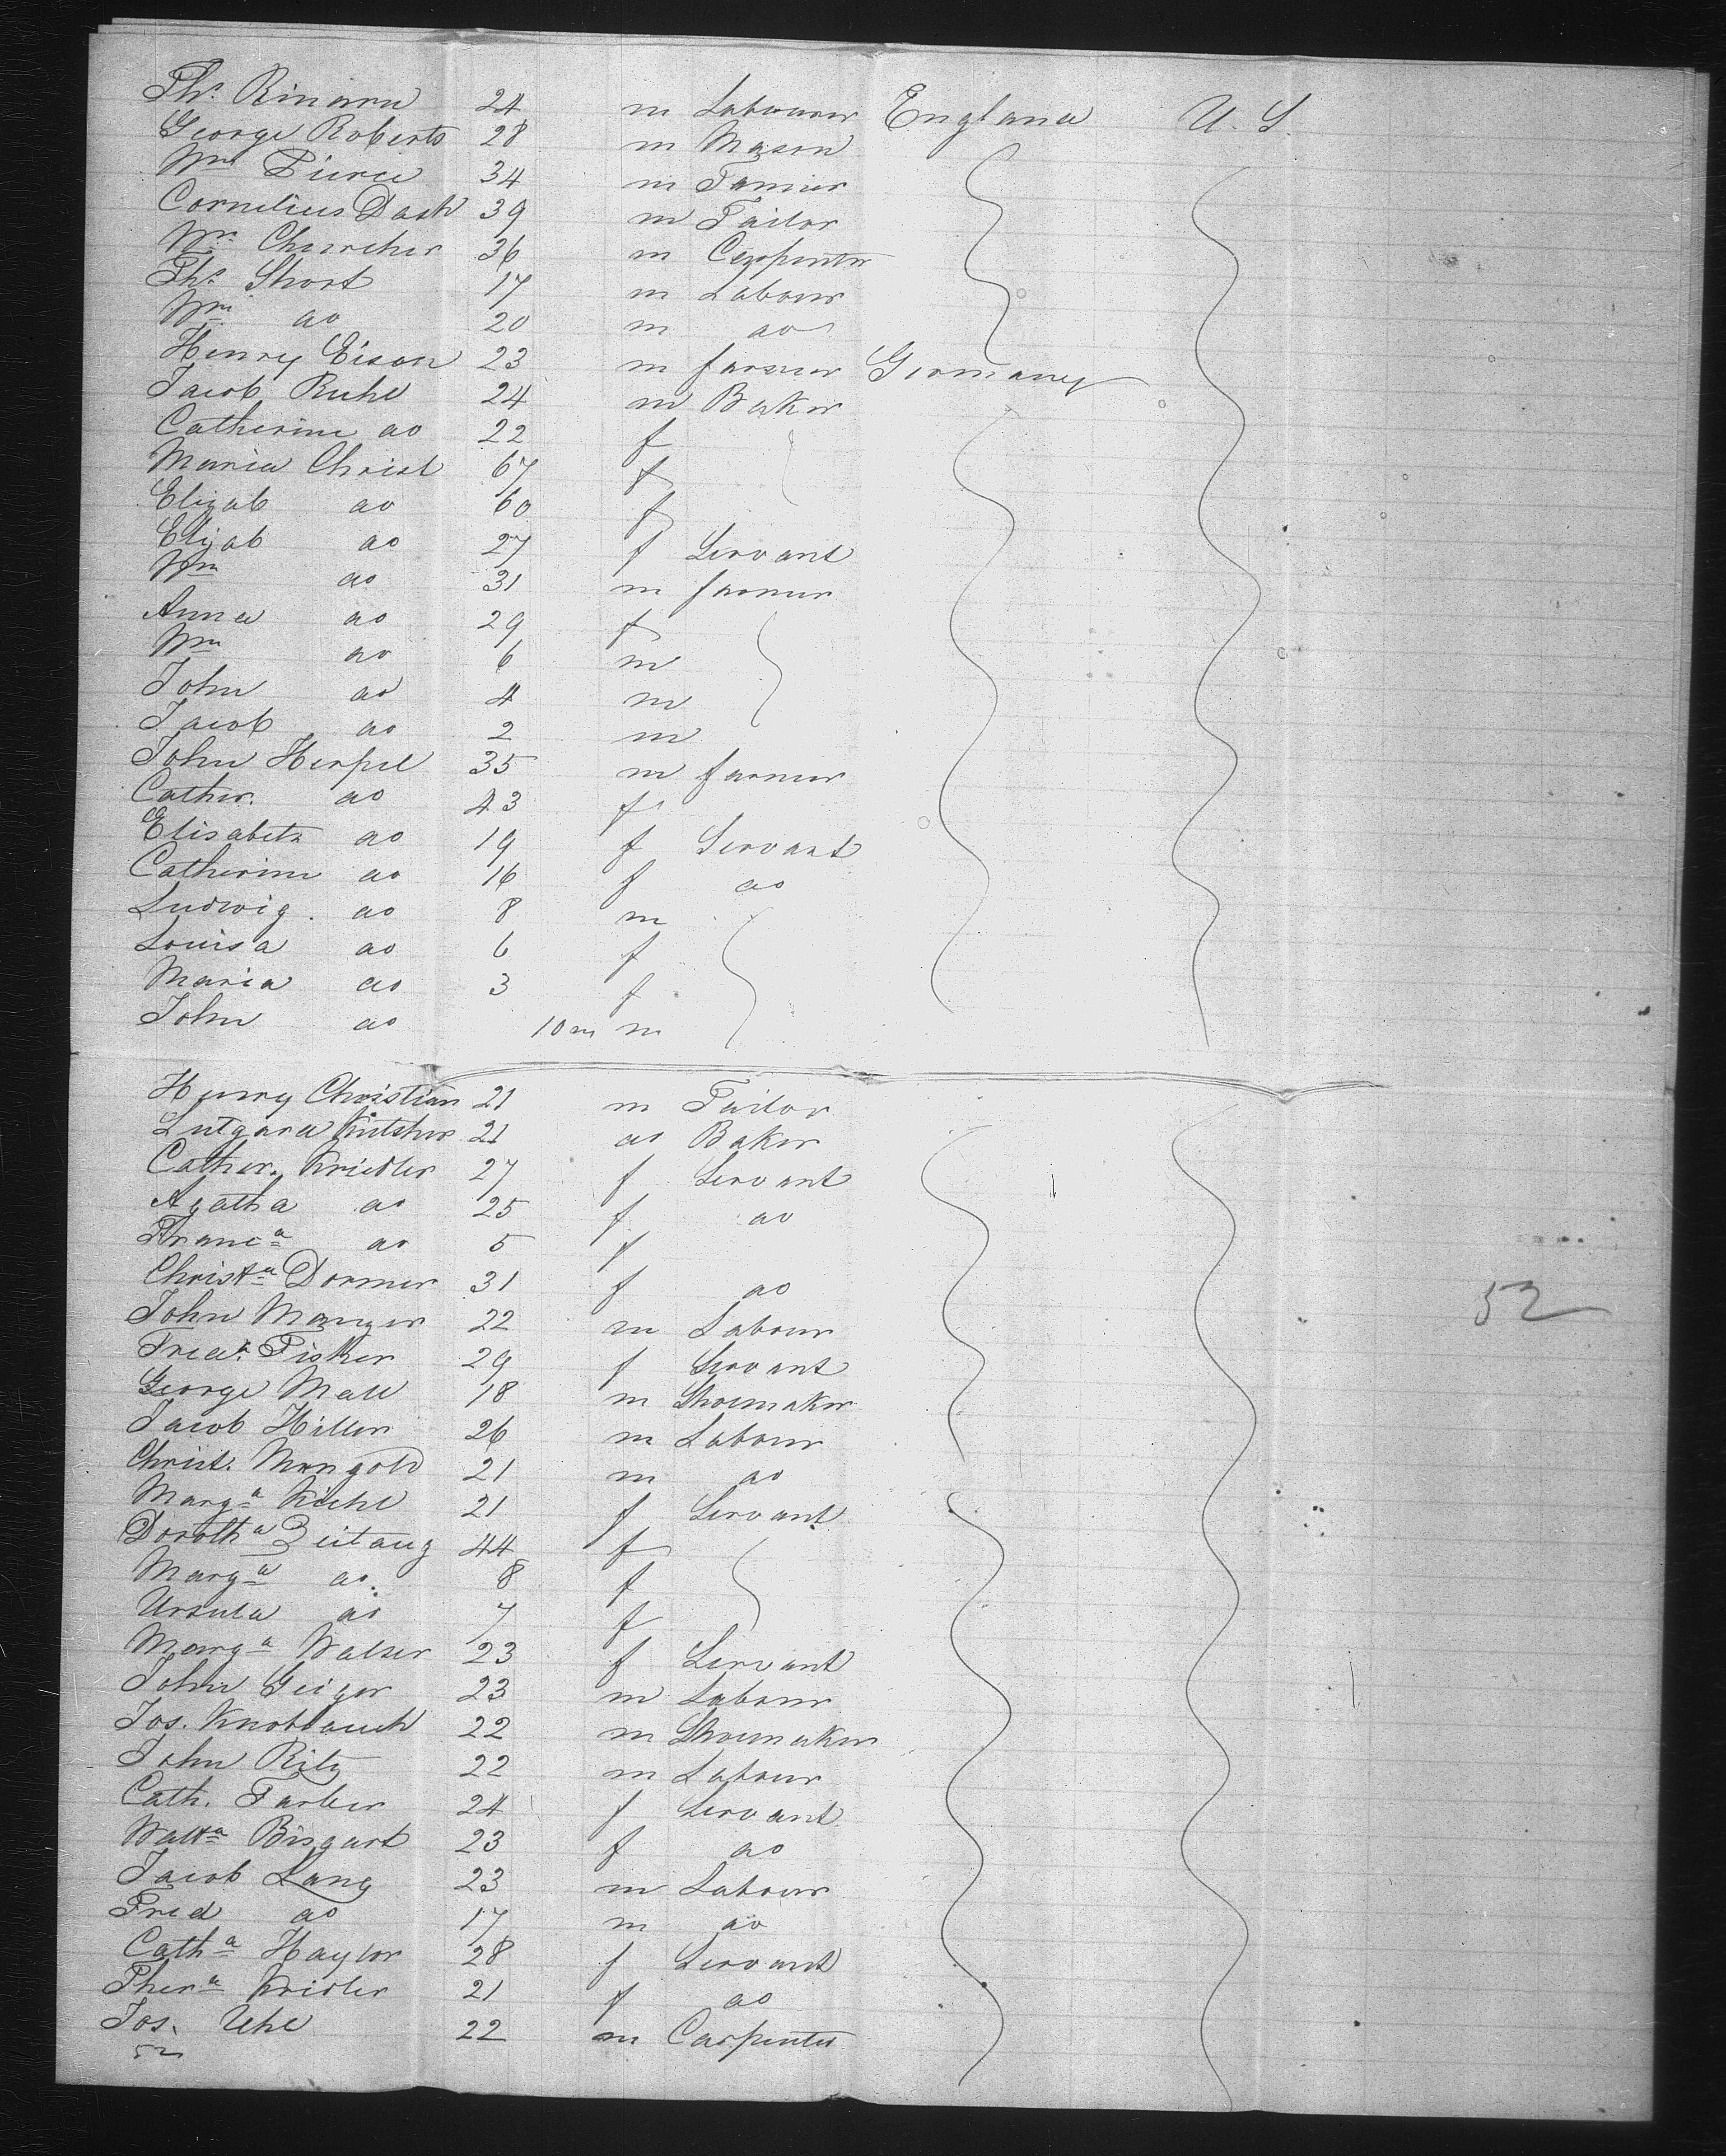 Ths. Rinarn 24 m Labourer England U. S.
George Roberts 28 m Mason
Wm Pierce 34 m Tanner
Cornelius Dash 39 m Tailor
Wm Churcher 36 m Carpenter
Ths. Short 17 m Labour
Wm do 20 m do
Henry Eison 23 m farmer Germany
Jacob Ruhl 24 m Baker
Catherine do 22 f
Maria Christ 67 f
Elizab do 60 f
Elizab do 27 f Servant
Wm do 31 m farmer
Anna do 29 f
Wm do 6 m
John do 4 m
Jacob do 2 m
John Herpel 35 m farmer
Cather. do 43 f
Elisabeth do 19 f Servant
Catherine do 16 f do
Ludwig. do 8 m
Louisa do 6 f
Maria do 3 f
John do 10 m m
Henry Christian 21 m Tailor
Lutgard 21 do Baker
Cather. Kriedler 27 f Servant
Agatha do 25 f do
Franca do 5 f
Christa Dormer 31 f do
52
John Manger 22 m Labour
Freda. Fisher 29 f Servant
George Mall 18 m Shoemaker
Jacob Hiller 26 m Labour
Christ. Mangold 21 m do
Marga Kiehl 21 f Servant
Dorotha Zeitang 44 f
Marga do. 8 f
Ursula do 7 f
Marga Walser 23 f Servant
John Geiger 23 m Labour
Jos. Knoblauch 22 m Shoemaker
John Ritz 22 m Labour
Cath. Farber 24 f Servant
Walta Bisgart 23 f do
Jacob Lang 23 m Labour
Fred do 17 m do
Catha Haylor 28 f Servant
Thera Kridler 21 f do
Jos. Uhl 22 m Carpenter
52